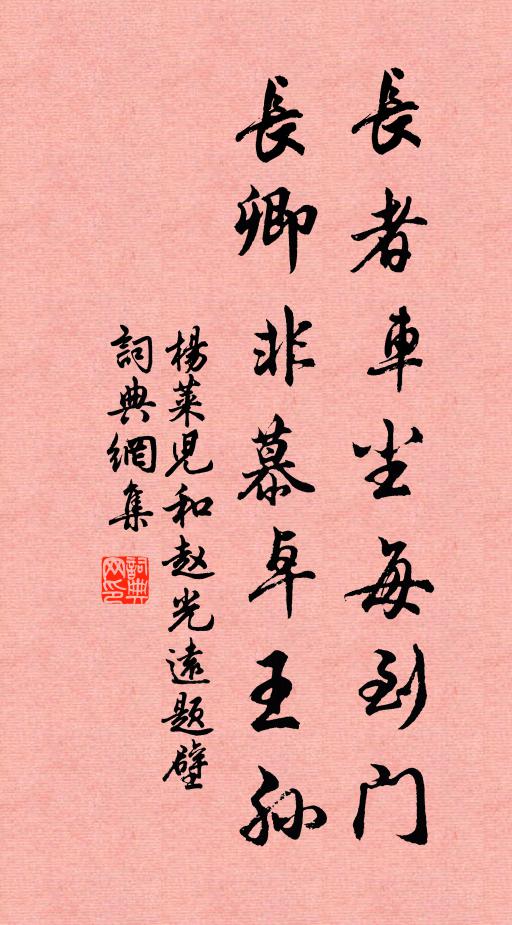 長者車尘每到门
長卿非慕卓王孙
楊萊児和赵光遠题壁
詞典網集
詞典网印